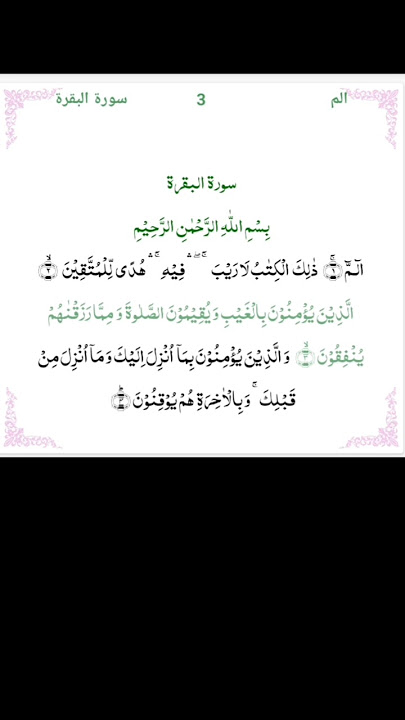 الم 3 سورة البقرة
سورة البقرة
بِسْمِ اللّٰهِ الرَّحْمٰنِ الرَّحِيْمِ
الٓمّٓ ۚ‏﴿۱﴾ ذٰلِكَ الْكِتٰبُ لَا رَيْبَ ۛۚۖ فِيْهِ ۛۚ هُدًى لِّلْمُتَّقِيْنَ ۙ‏﴿۲﴾
الَّذِيْنَ يُؤْمِنُوْنَ بِالْغَيْبِ وَ يُقِيْمُوْنَ الصَّلٰوةَ وَ مِمَّا رَزَقْنٰهُمْ
يُنْفِقُوْنَ ۙ‏﴿۳﴾ وَ الَّذِيْنَ يُؤْمِنُوْنَ بِمَاۤ اُنْزِلَ اِلَيْكَ وَ مَاۤ اُنْزِلَ مِنْ
قَبْلِكَ ۚ وَ بِالْاٰخِرَةِ هُمْ يُوْقِنُوْنَ ؕ‏﴿۴﴾